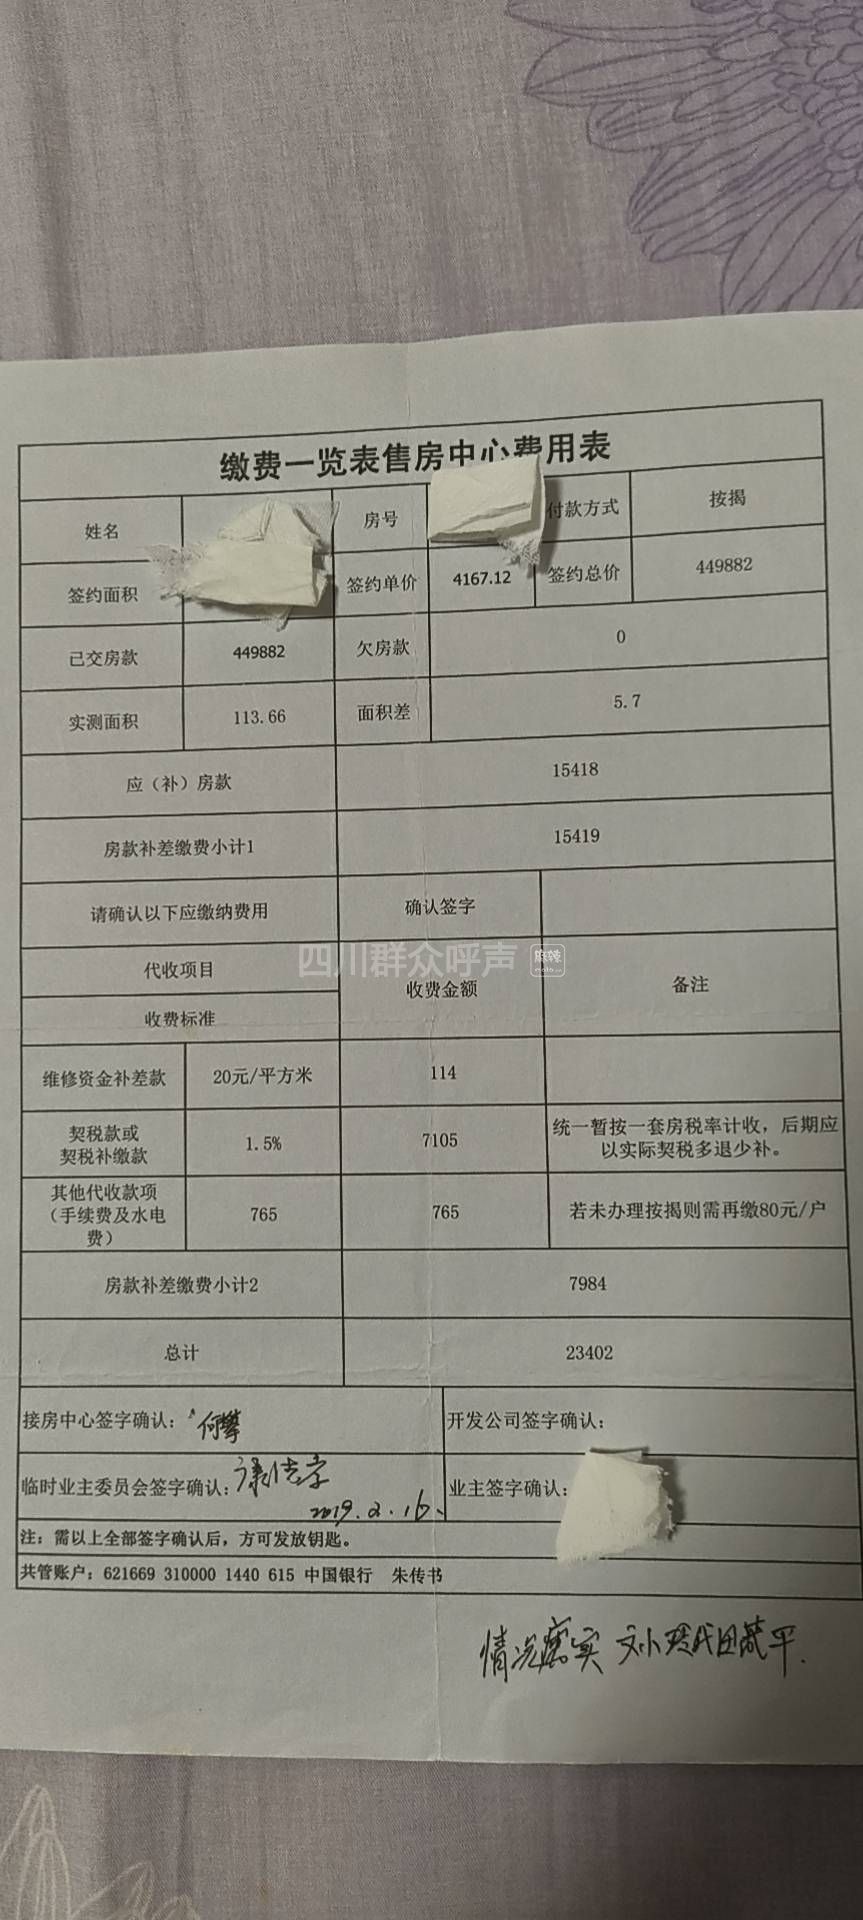 缴费一览表售房中心费用表
姓名 房号 付款方式 按揭
签约面积 签约单价 4167.12 签约总价 449882
已交房款 449882 欠房款 0
实测面积 113.66 面积差 5.7
应（补）房款 15418
房款补差缴费小计1 15419
请确认以下应缴纳费用 确认签字
四川群众呼声 麻辣
代收项目 收费金额 备注
收费标准
维修资金补差款 20元/平方米 114
契税款或
契税补缴款 1.5% 7105 统一暂按一套房税率计收，后期应
以实际契税多退少补。
其他代收款项
（手续费及水电
费） 765 765 若未办理按揭则需再缴80元/户
房款补差缴费小计2 7984
总计 23402
接房中心签字确认： 何攀 开发公司签字确认：
临时业主委员会签字确认： 业主签字确认：
2019.2.16.
注：需以上全部签字确认后，方可发放钥匙。
共管账户：621669 310000 1440 615 中国银行 朱传书
情况属实